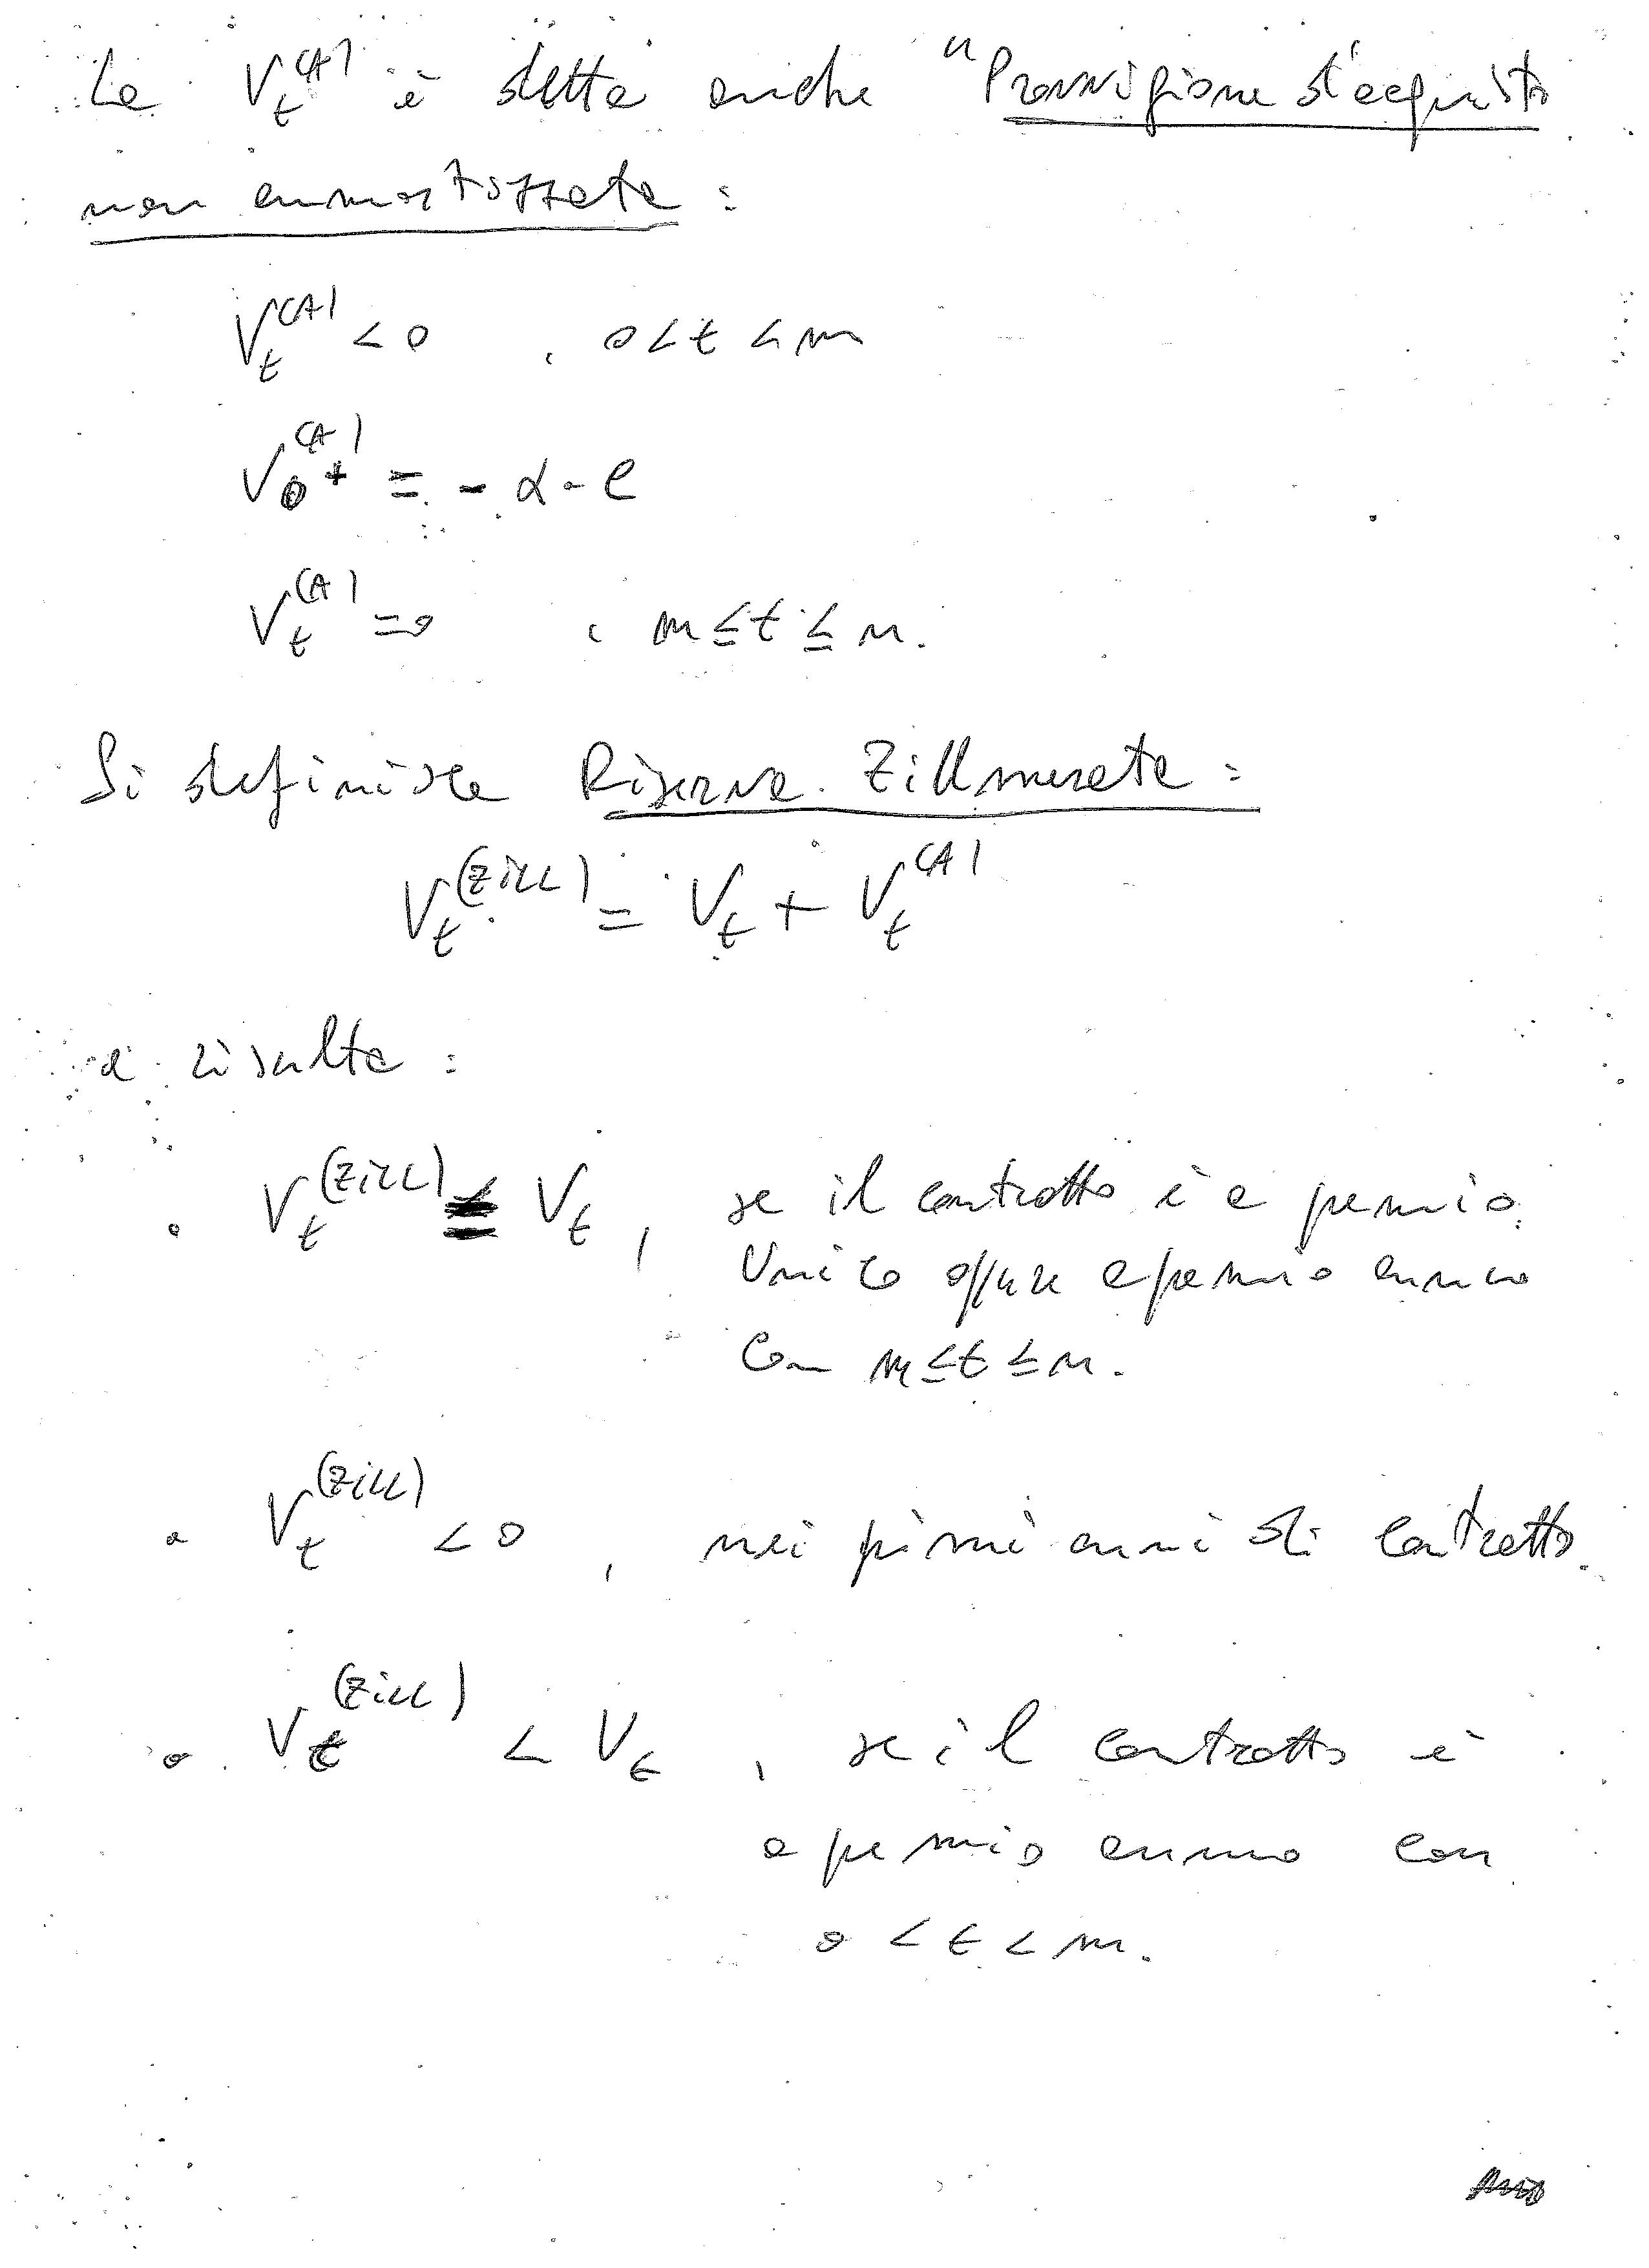 La V_t^(A) è detta anche "Provvigione d'acquisto
non ammortizzata :
V_t^(A) < 0 , 0 < t < m
V_0+^(A) = - α - e
V_t^(A) = 0 , m ≤ t ≤ n.
Si definisce Riserva Zillmerata :
V_t^(Zill) = V_t + V_t^(A)
e risulta :
• V_t^(Zill) = V_t , se il contratto è a premio
Unico oppure a premio annuo
Con m ≤ t ≤ n.
• V_t^(Zill) < 0 , nei primi anni di contratto.
• V_t^(Zill) < V_t , se il contratto è
a premio annuo con
0 < t < m.